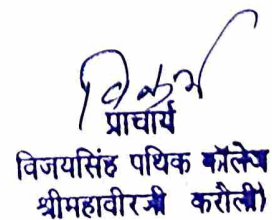 प्राचार्य
विजयसिंह पथिक कॉलेज
श्रीमहावीरजी करौली)